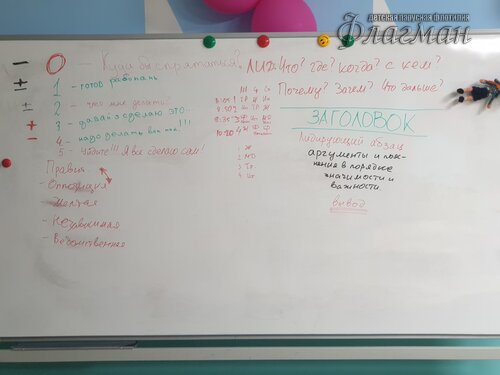 Детская парусная флотилия
Флагман
- 0 — Куда бы спрятаться?
± 1 - готов работать
± 2 - что мне делать?
+ 3 - давай я сделаю это...
+ 4 - надо делать вот так!!!
5 - Уйдите!!! Я всё сделаю сам!
Правит
- Оппозиция
- Желтая
- Независимая
- Ведомственная
1 Ж
2 НО
ЛИД: Что? Где? Когда? С кем?
Почему? Зачем? Что дальше?
ЗАГОЛОВОК
Лидирующий абзац
аргументы и пояс-
нения в порядке
значимости и
важности.
вывод